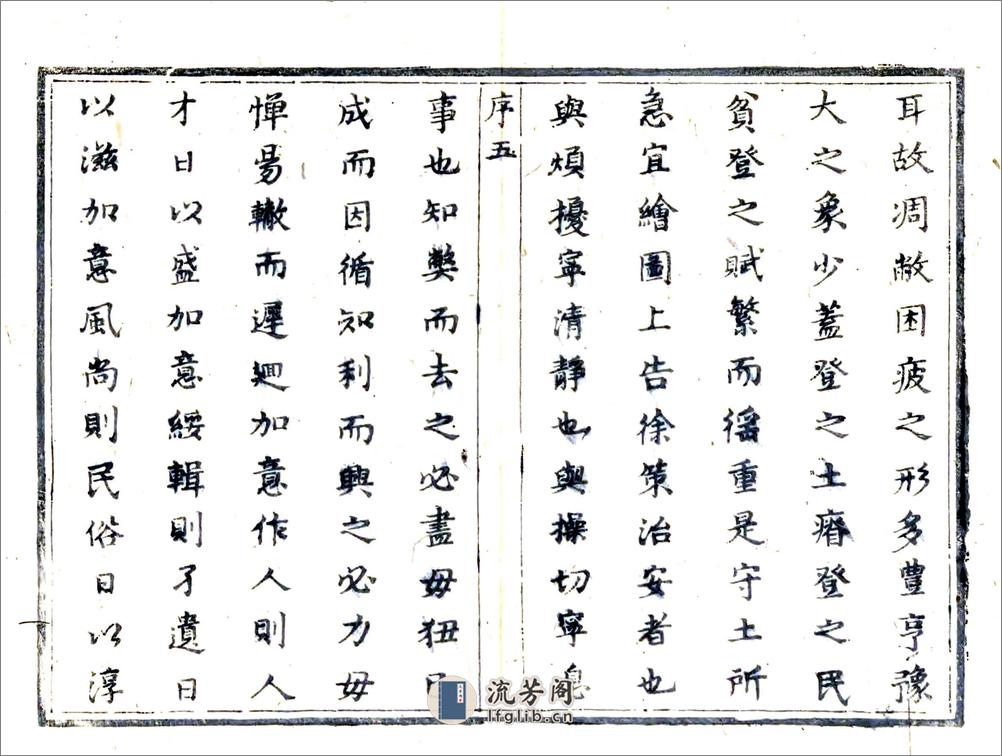 耳故凋敝困疲之形多豐亨豫
大之象少蓋登之土瘠登之民
貧登之賦繁而徭重是守土所
急宜繪圖上告徐策治安者也
與煩擾寧清靜也與操切寧息
序五
事也知弊而去之必盡毋狃已
成而因循知利而興之必力毋
憚易轍而遲迴加意作人則人
才日以盛加意綏輯則孑遺日
以滋加意風尚則民俗日以淳
流芳阁
lfglib.cn